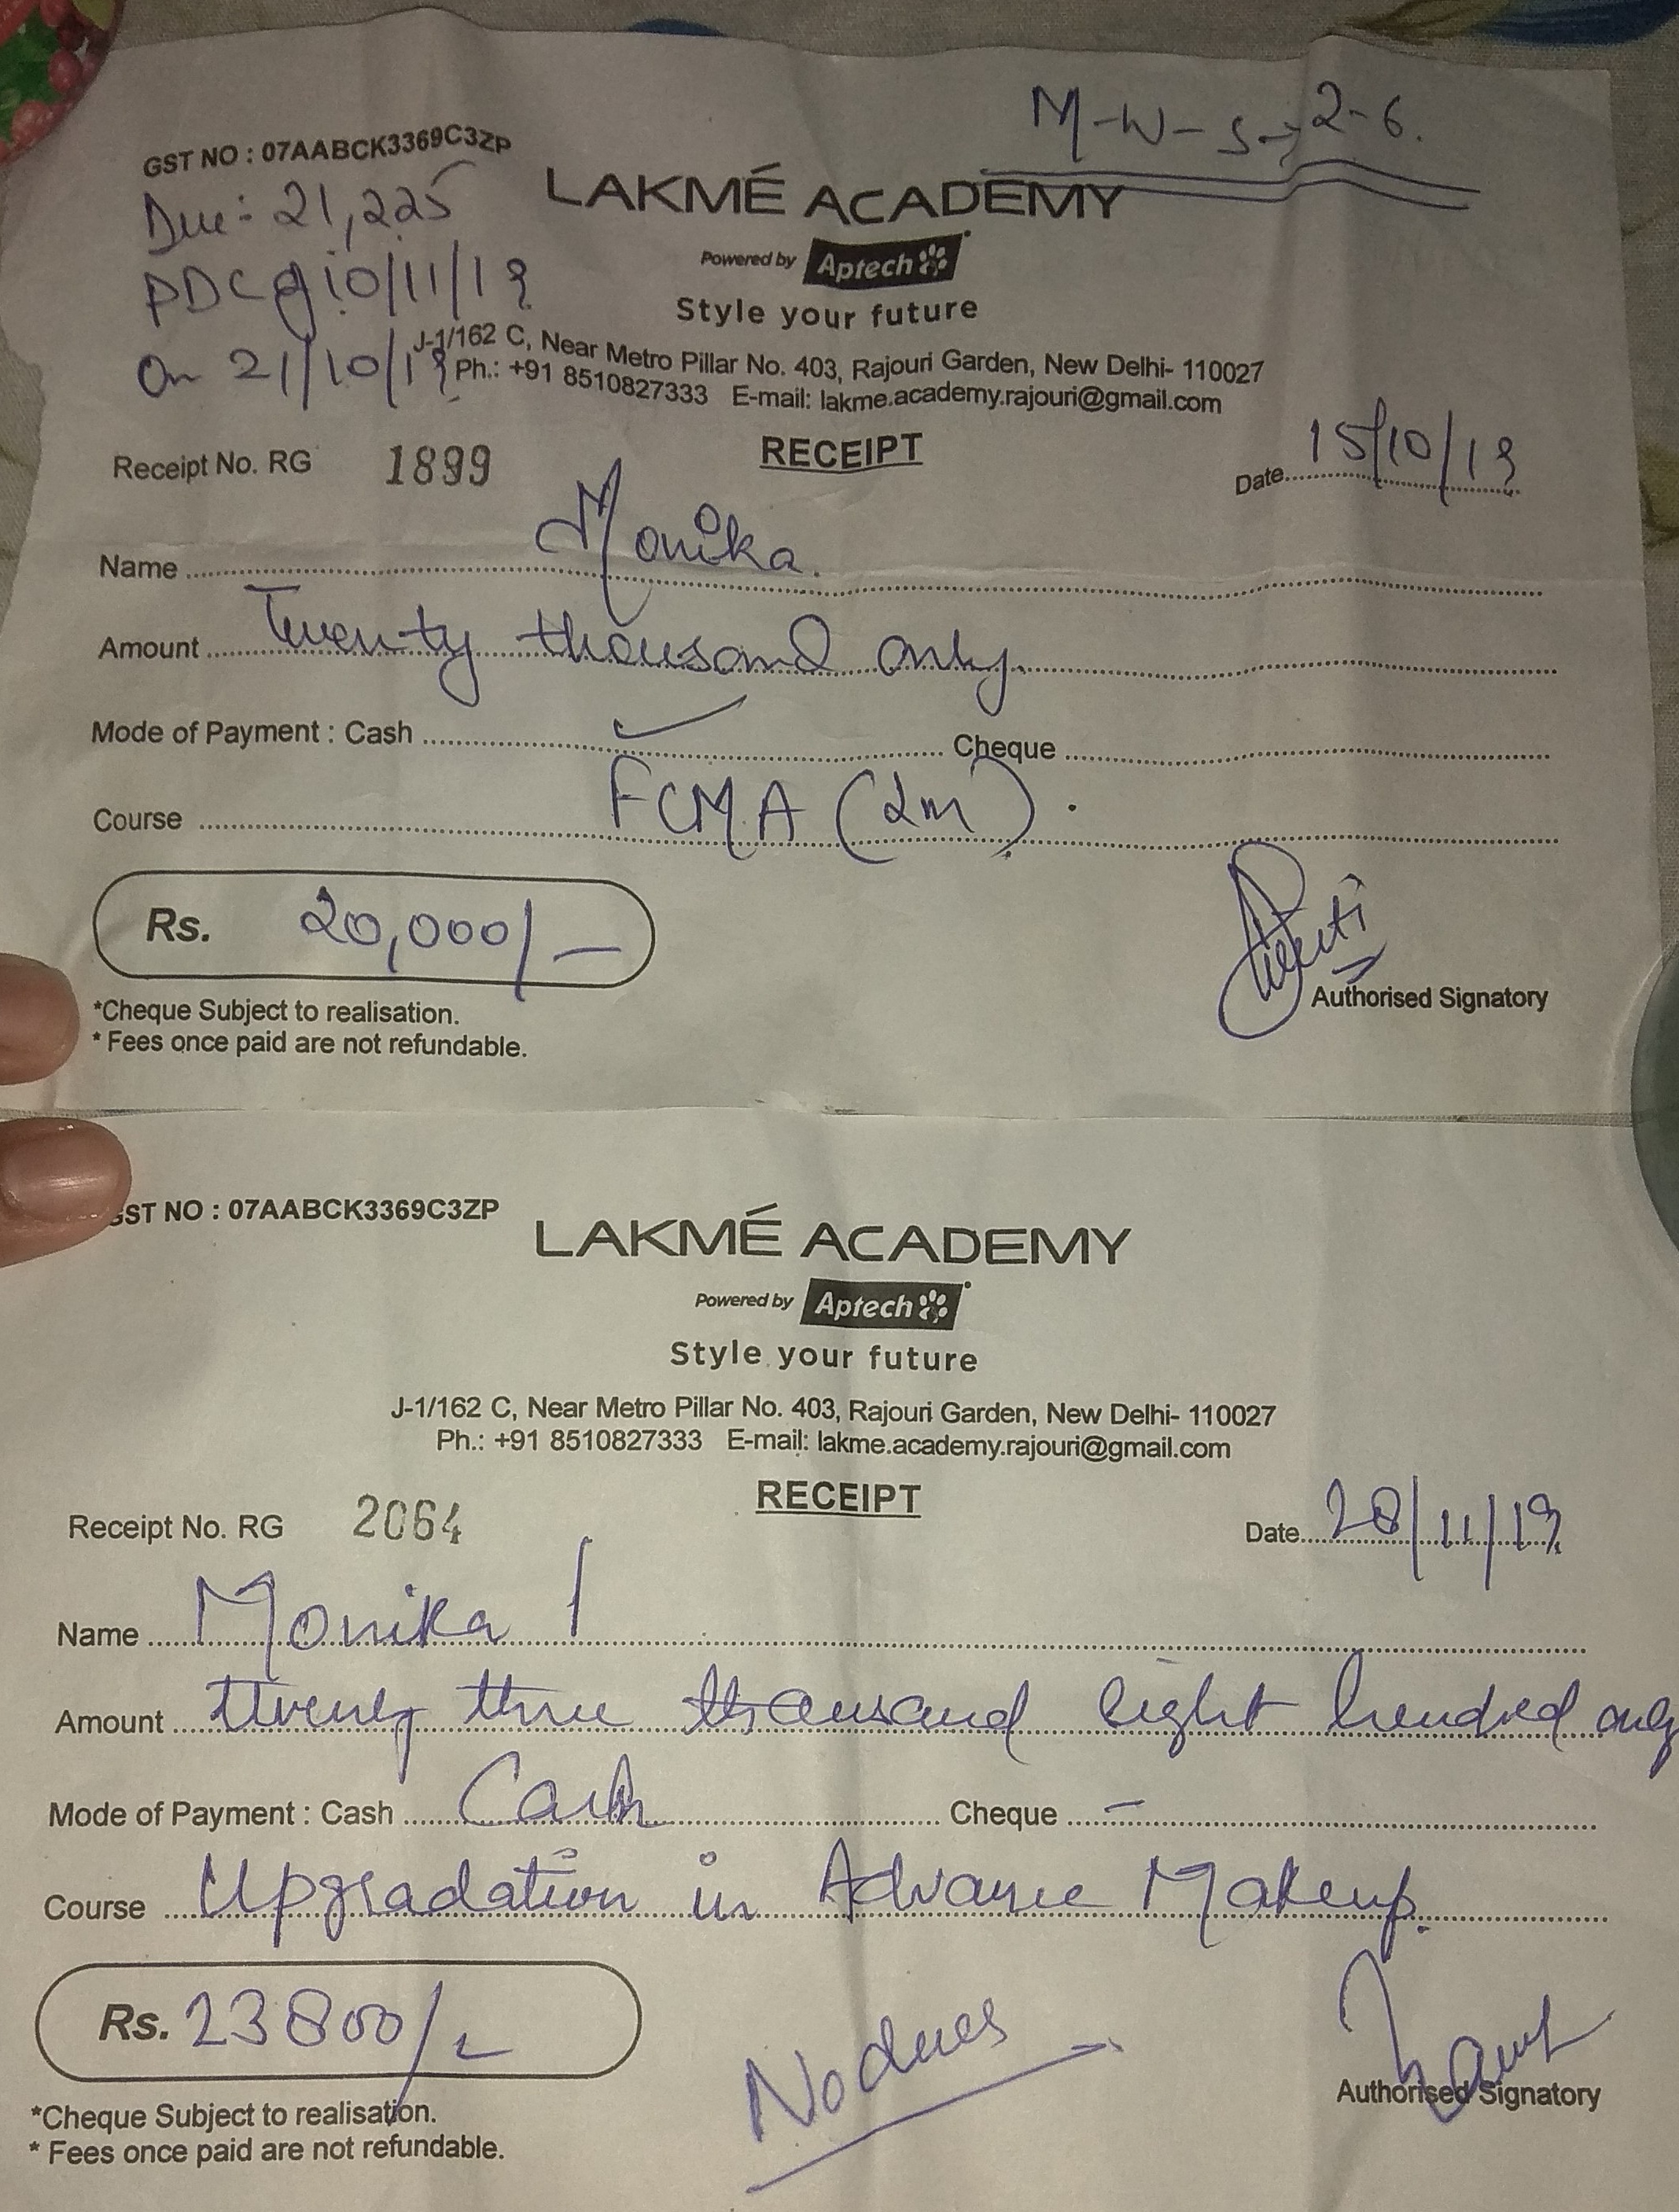 M-W-S→2-6.
GST NO : 07AABCK3369C3ZP
Due: 21,225
LAKMÉ ACADEMY
Powered by Aptech
PDC of 10/11/19
Style your future
On 21/10/19
J-1/162 C, Near Metro Pillar No. 403, Rajouri Garden, New Delhi- 110027
Ph.: +91 8510827333 E-mail: lakme.academy.rajouri@gmail.com
Receipt No. RG 1899 RECEIPT Date 15/10/19
Name Monika.
Amount Twenty thousand only.
Mode of Payment : Cash ✓ Cheque
Course FCMA (2m).
Rs. 20,000/-
Authorised Signatory
*Cheque Subject to realisation.
* Fees once paid are not refundable.
GST NO : 07AABCK3369C3ZP
LAKMÉ ACADEMY
Powered by Aptech
Style your future
J-1/162 C, Near Metro Pillar No. 403, Rajouri Garden, New Delhi- 110027
Ph.: +91 8510827333 E-mail: lakme.academy.rajouri@gmail.com
RECEIPT
Receipt No. RG 2064 Date 28/11/19
Name Monika
Amount Twenty three thousand eight hundred only
Mode of Payment : Cash Cash Cheque -
Course Upgradation in Advance Makeup.
Rs. 23800/-
No dues
Authorised Signatory
*Cheque Subject to realisation.
* Fees once paid are not refundable.